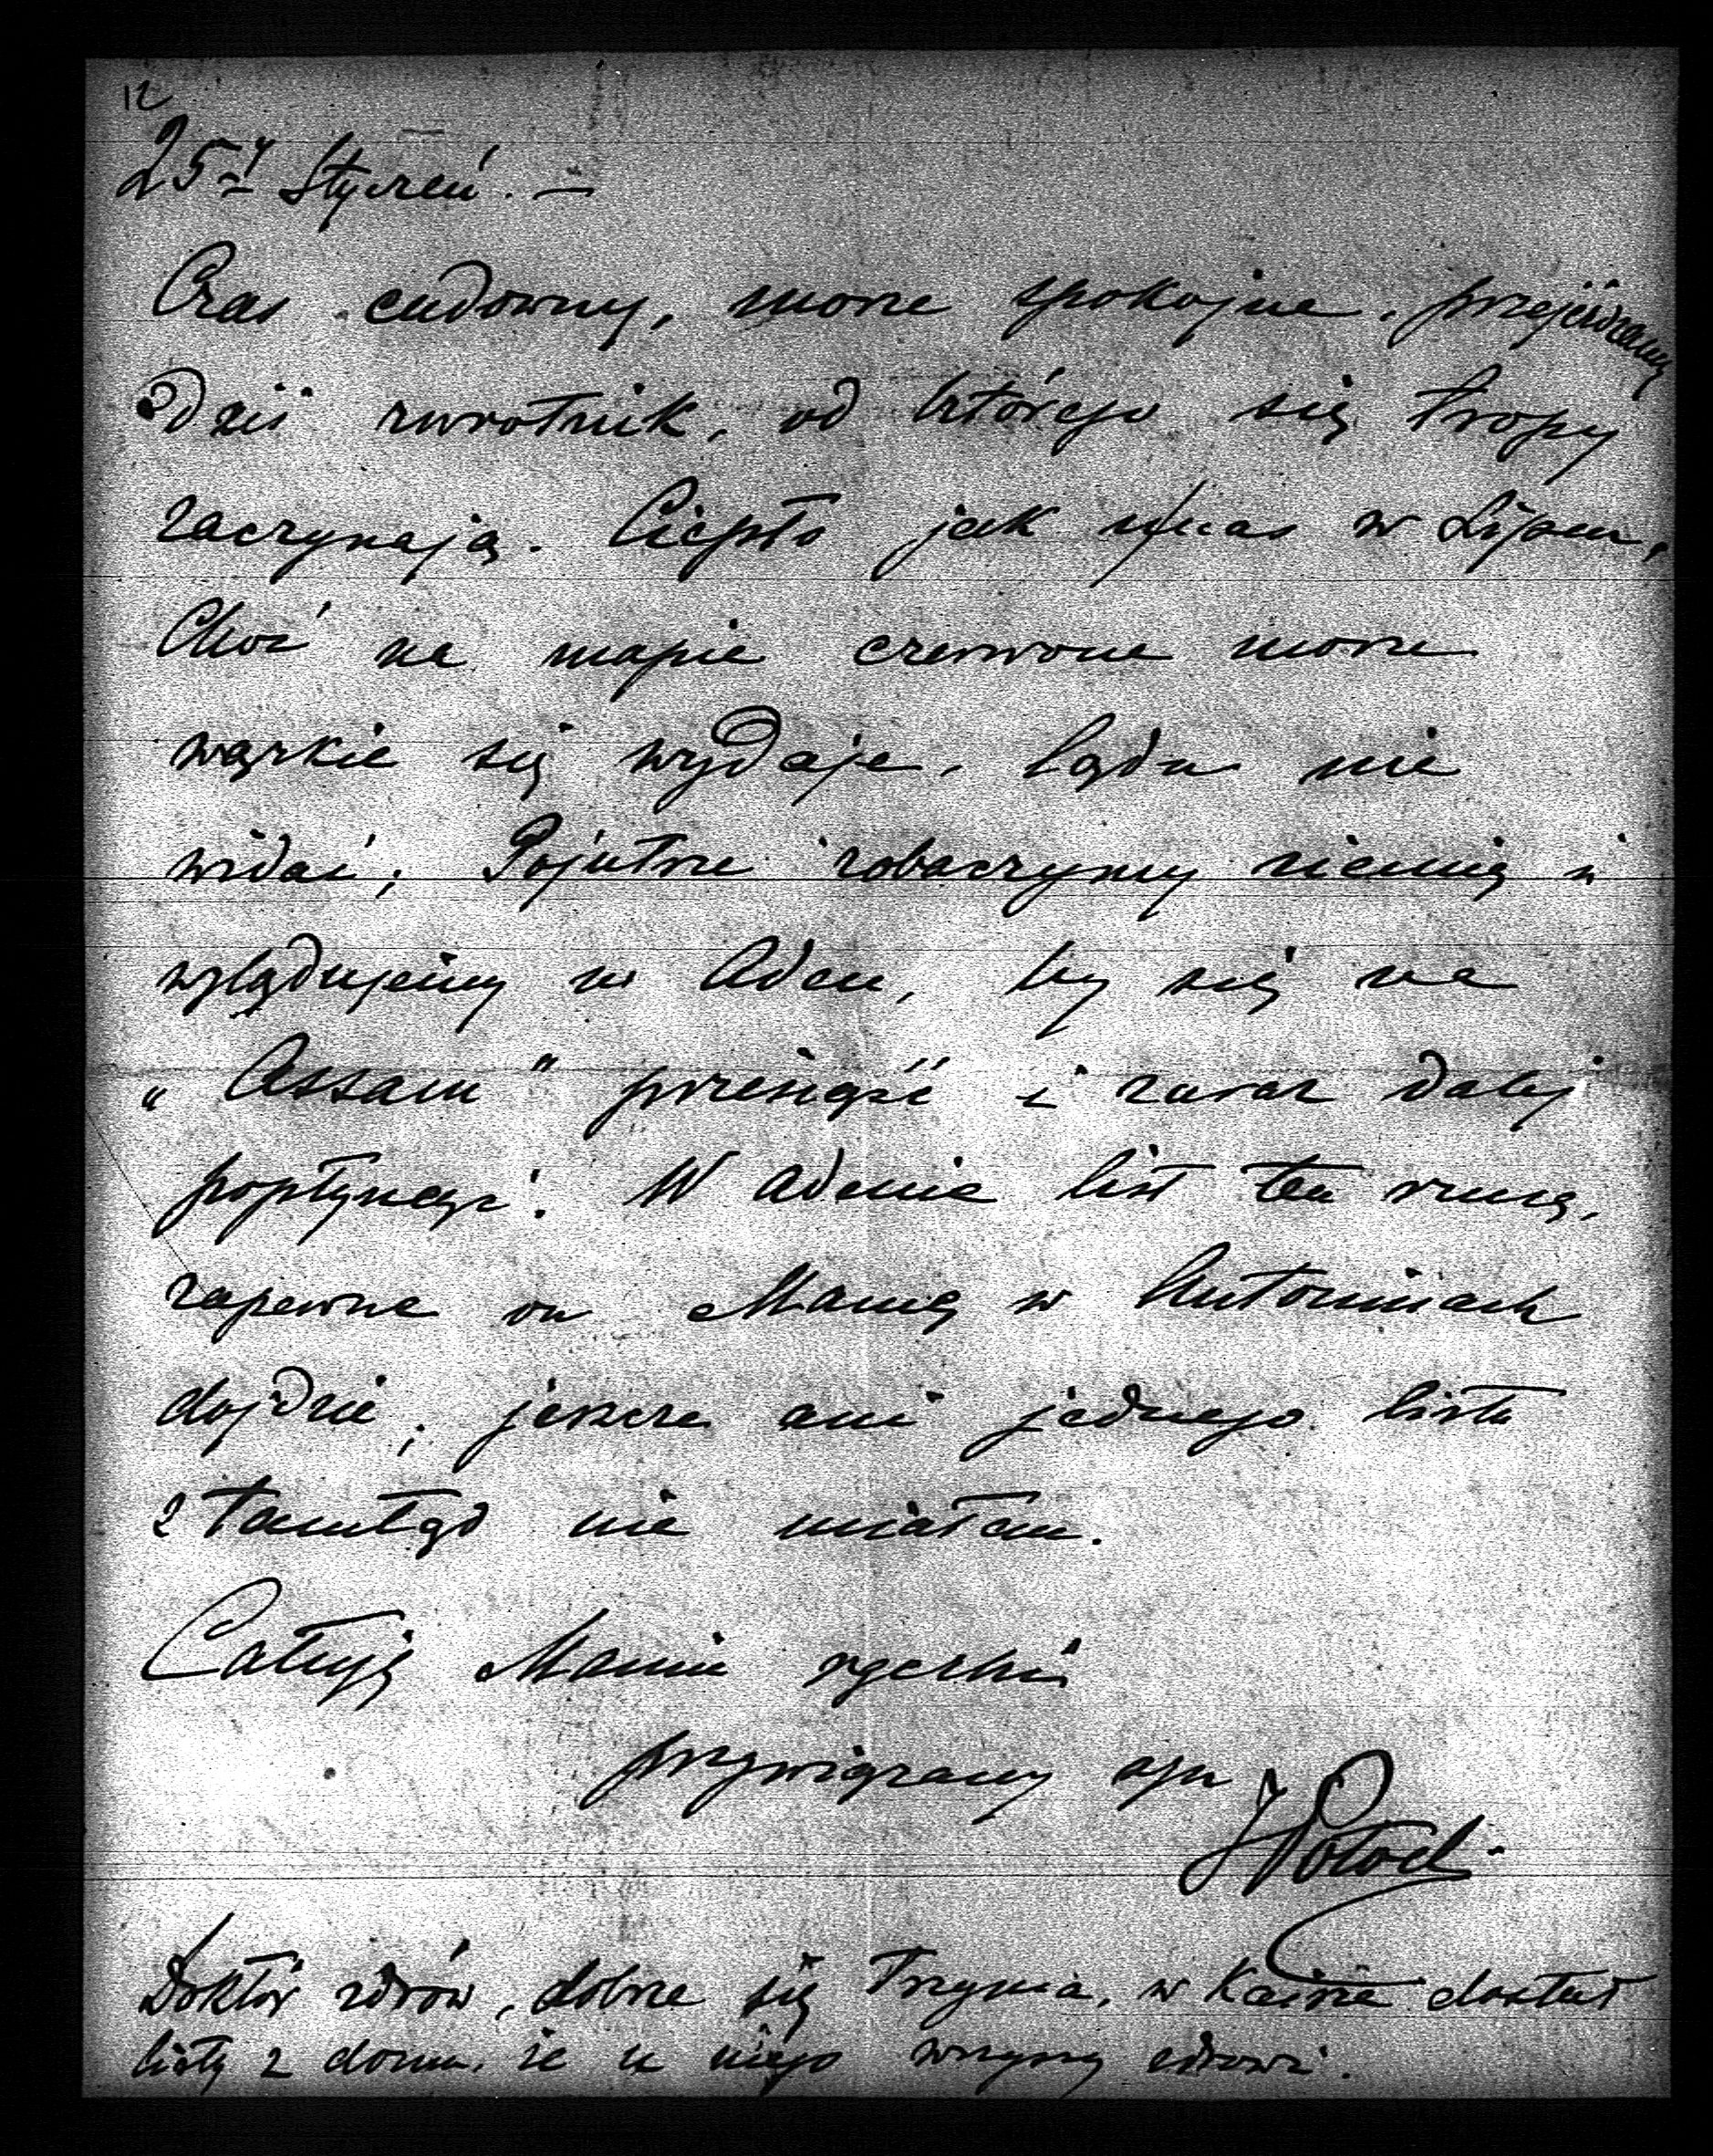 12
25ty Styczeń. —
Czas cudowny, morze spokojne, przejeżdżamy
dziś zwrotnik, od którego się tropy
zaczynają. Ciepło jak u nas w Lipcu,
Choć na mapie czerwone morze
wązkie się wydaje, lądu nie
widać; Pojutrze zobaczymy ziemię i
wylądujemy w Aden, by się na
„Assam" przesiąść i zaraz dalej
popłynąć. W Adenie list ten rzucę,
zapewne on Mamę w Antoninach
dojdzie, jeszcze ani jednego listu
ztamtąd nie miałem.
Całuję Mamie rączki
przywiązany syn
JPotocki
Doktór zdrów, dobrze się trzyma, w Kairze dostał
listy z domu, że u niego wszyscy zdrowi.